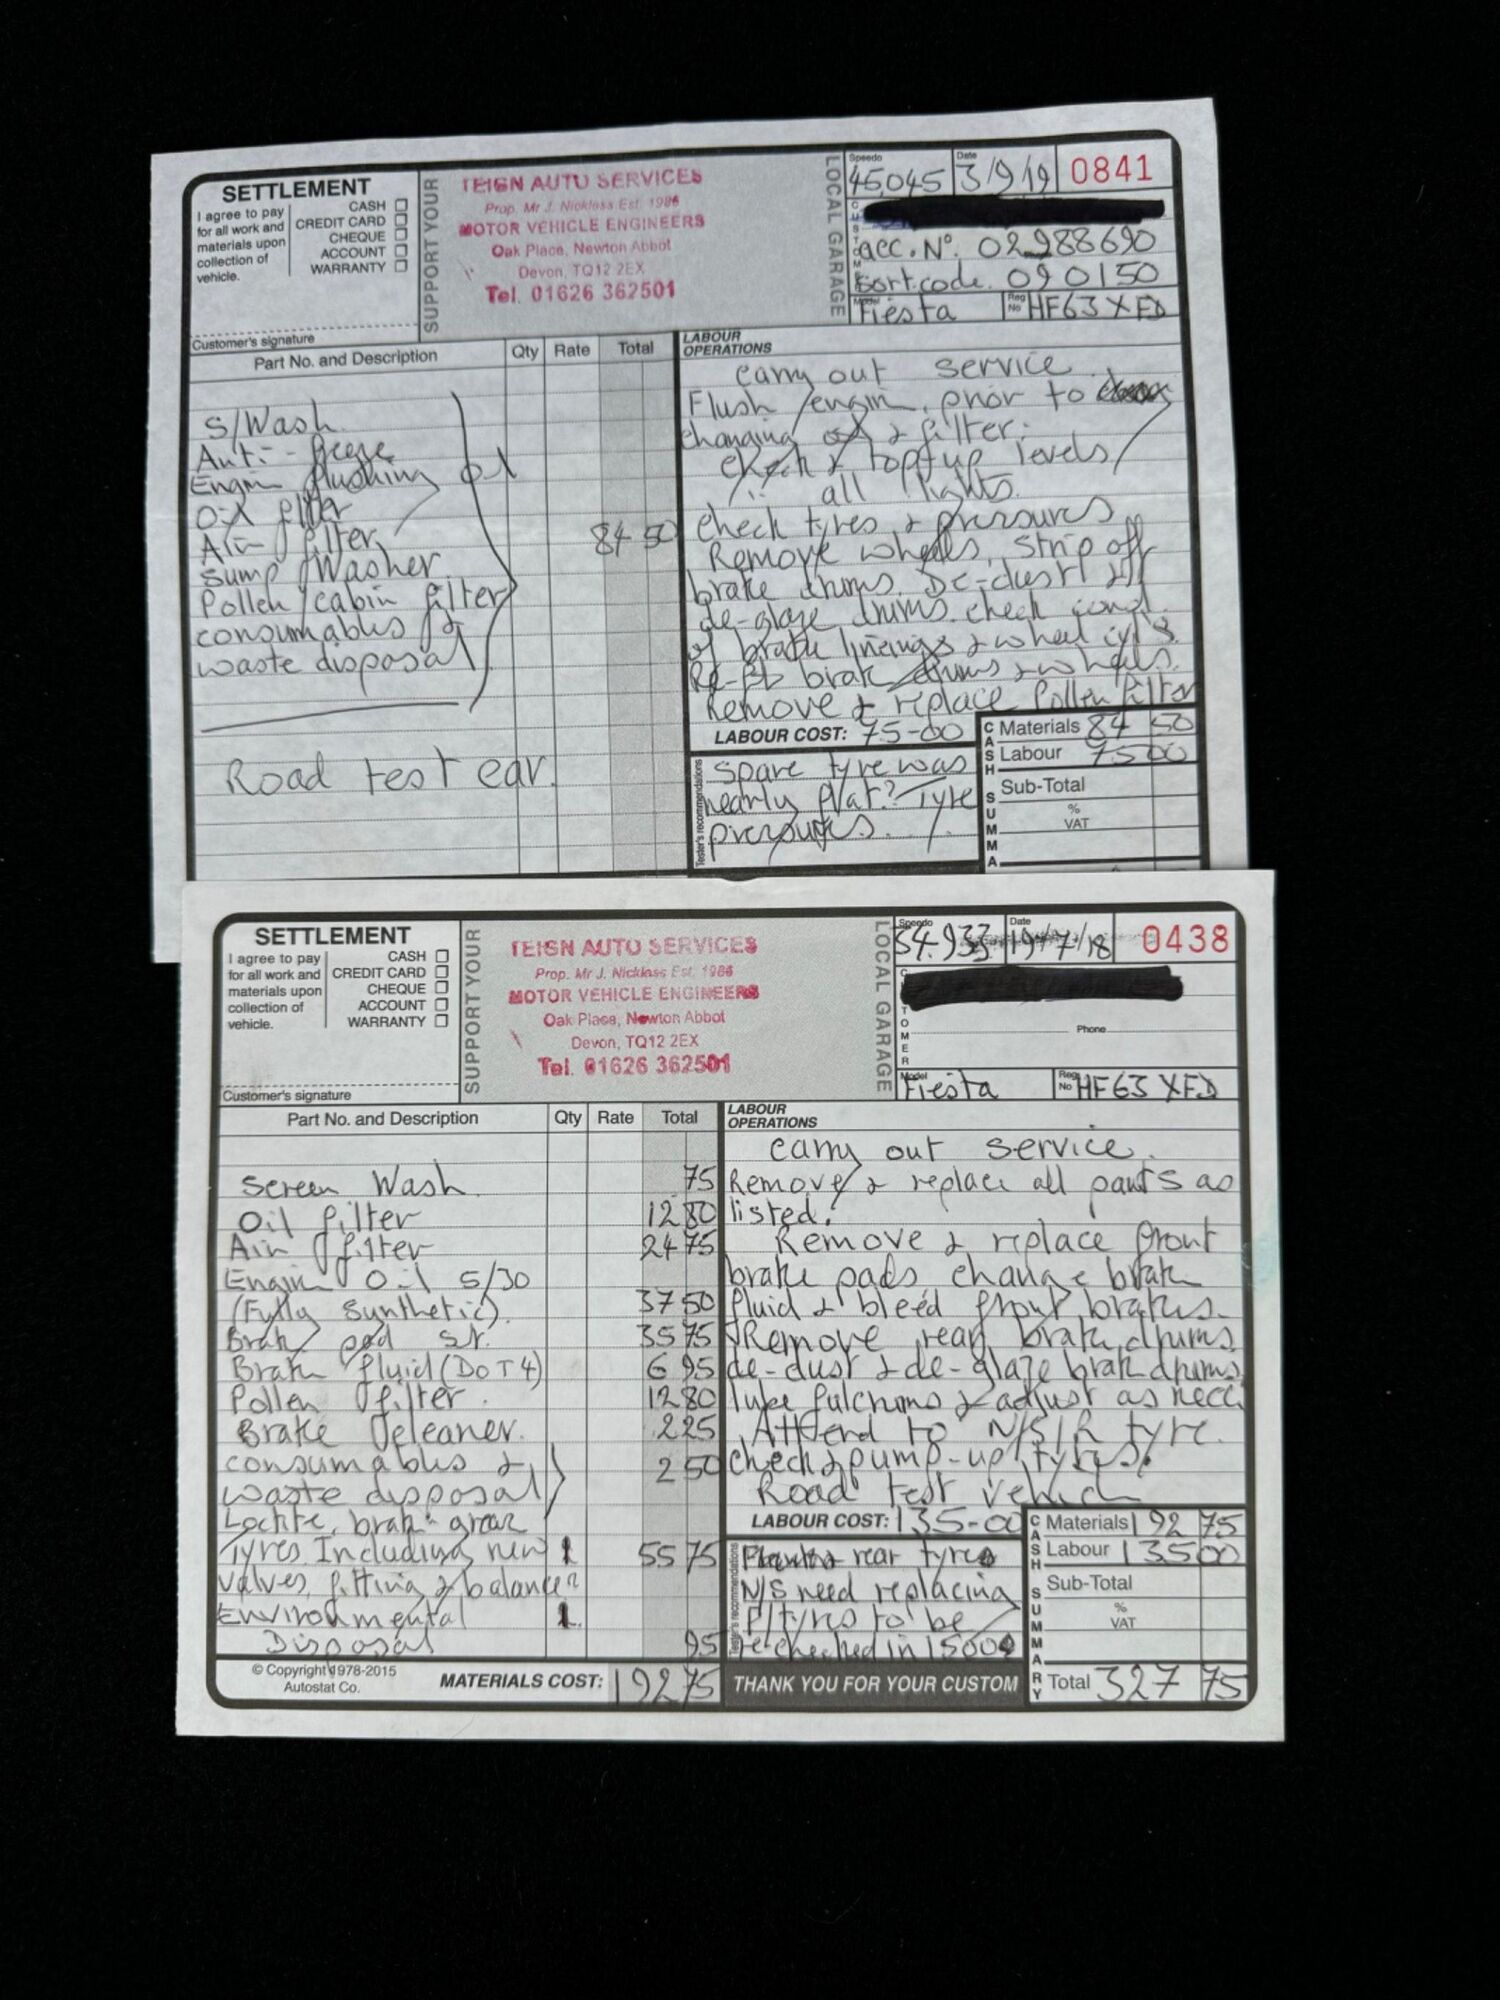 SETTLEMENT
I agree to pay
for all work and
materials upon
collection of
vehicle.
CASH
CREDIT CARD
CHEQUE
ACCOUNT
WARRANTY
Customer's signature
SUPPORT YOUR
TEIGN AUTO SERVICES
Prop. Mr J. Nickless Est. 1986
MOTOR VEHICLE ENGINEERS
Oak Place, Newton Abbot
Devon, TQ12 2EX
Tel. 01626 362501
LOCAL GARAGE
Speedo 45,045 Date 3/9/19 0841
acc. No. 02988690
Sort.code. 090150
Model Fiesta Reg No HF63 XFD
Part No. and Description Qty Rate Total
S/Wash
Anti-freeze
Engin flushing oil
Oil filter
Air filter 84 50
Sump Washer
Pollen/cabin filter
consumables &
waste disposal
Road test car.
LABOUR
OPERATIONS
carry out service.
Flush engin, prior to
changing oil & filter.
check & top up levels
" all lights.
check tyres & pressures
Remove wheels, strip off
brake drums. De-dust &
de-glaze drums. check cond.
of brake linings & wheel cyl's.
Re-fit brak drums & wheels.
Remove & replace Pollen filter
LABOUR COST: 75-00
Tester's recommendations
Spare tyre was
nearly flat? Tyre
pressures.
CASH SUMMA
Materials 84 50
Labour 75 00
Sub-Total
%
VAT
SETTLEMENT
I agree to pay
for all work and
materials upon
collection of
vehicle.
CASH
CREDIT CARD
CHEQUE
ACCOUNT
WARRANTY
Customer's signature
SUPPORT YOUR
TEIGN AUTO SERVICES
Prop. Mr J. Nickless Est. 1986
MOTOR VEHICLE ENGINEERS
Oak Place, Newton Abbot
Devon, TQ12 2EX
Tel. 01626 362501
LOCAL GARAGE
Speedo 34.933 Date 19/7/18 0438
Phone
Model Fiesta Reg No HF63 XFD
Part No. and Description Qty Rate Total
Screen Wash 75
Oil filter 12 80
Air filter 24 75
Engin Oil 5/30
(Fully Synthetic). 37 50
Brak pad st. 35 75
Brak fluid (DOT4) 6 95
Pollen filter. 12 80
Brake Cleaner. 2 25
consumables & 2 50
waste disposal
Loctite, brak grease
Tyres Including new 1 55 75
valves, fitting & balance
Environmental 1
Disposal 95
© Copyright 1978-2015
Autostat Co.
MATERIALS COST: 192 75
LABOUR
OPERATIONS
carry out service.
Remove & replace all parts as
listed.
Remove & replace front
brake pads change brak
fluid & bleed front brakes.
Remove rear brake drums,
de-dust & de-glaze brak drums
lube fulchrums & adjust as necc.
Attend to N/S/R tyre.
check & pump-up tyres.
Road test vehicl
LABOUR COST: 135-00
Tester's recommendations
rear tyre
N/S need replacing
F/tyres to be
re-checked in 1500
THANK YOU FOR YOUR CUSTOM
CASH SUMMARY
Materials 192 75
Labour 135 00
Sub-Total
%
VAT
Total 327 75